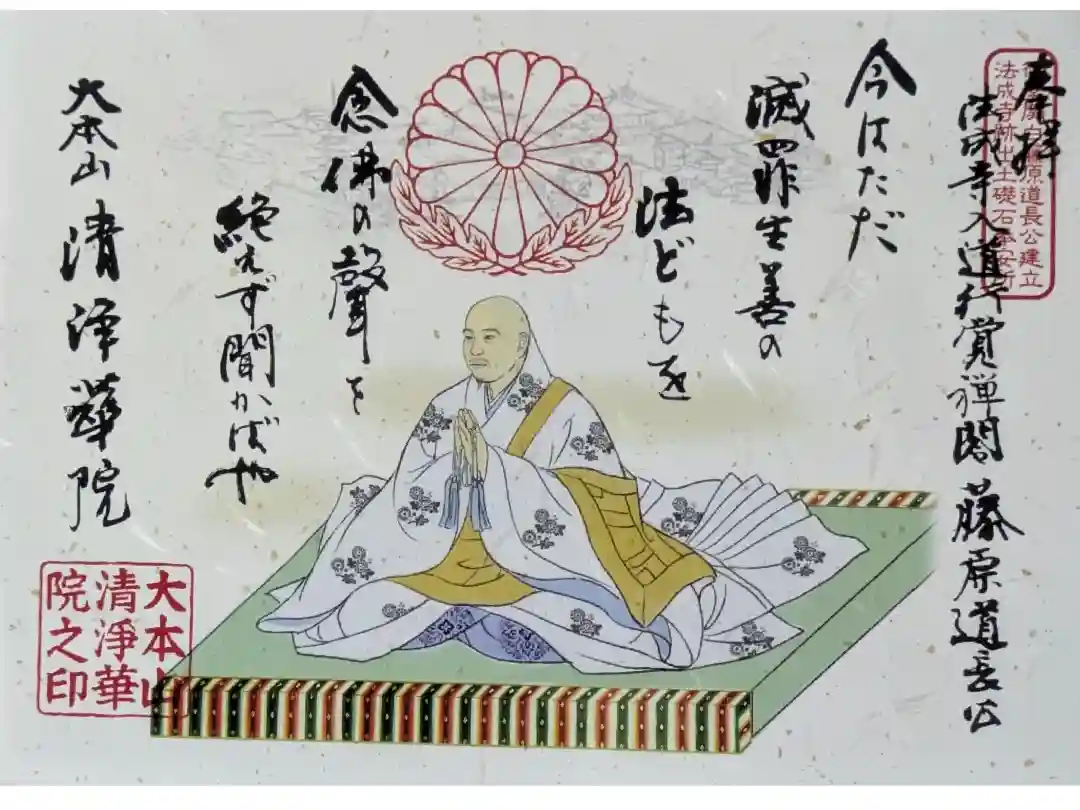 奉拝
藤原道長公建立
法成寺跡出土礎石奉安所
法成寺入道行覚禅閤 藤原道長公
今はただ
滅罪生善の
法どもを
念佛の聲を
絶えず聞かばや
大本山 清浄華院
大本山
清淨華
院之印